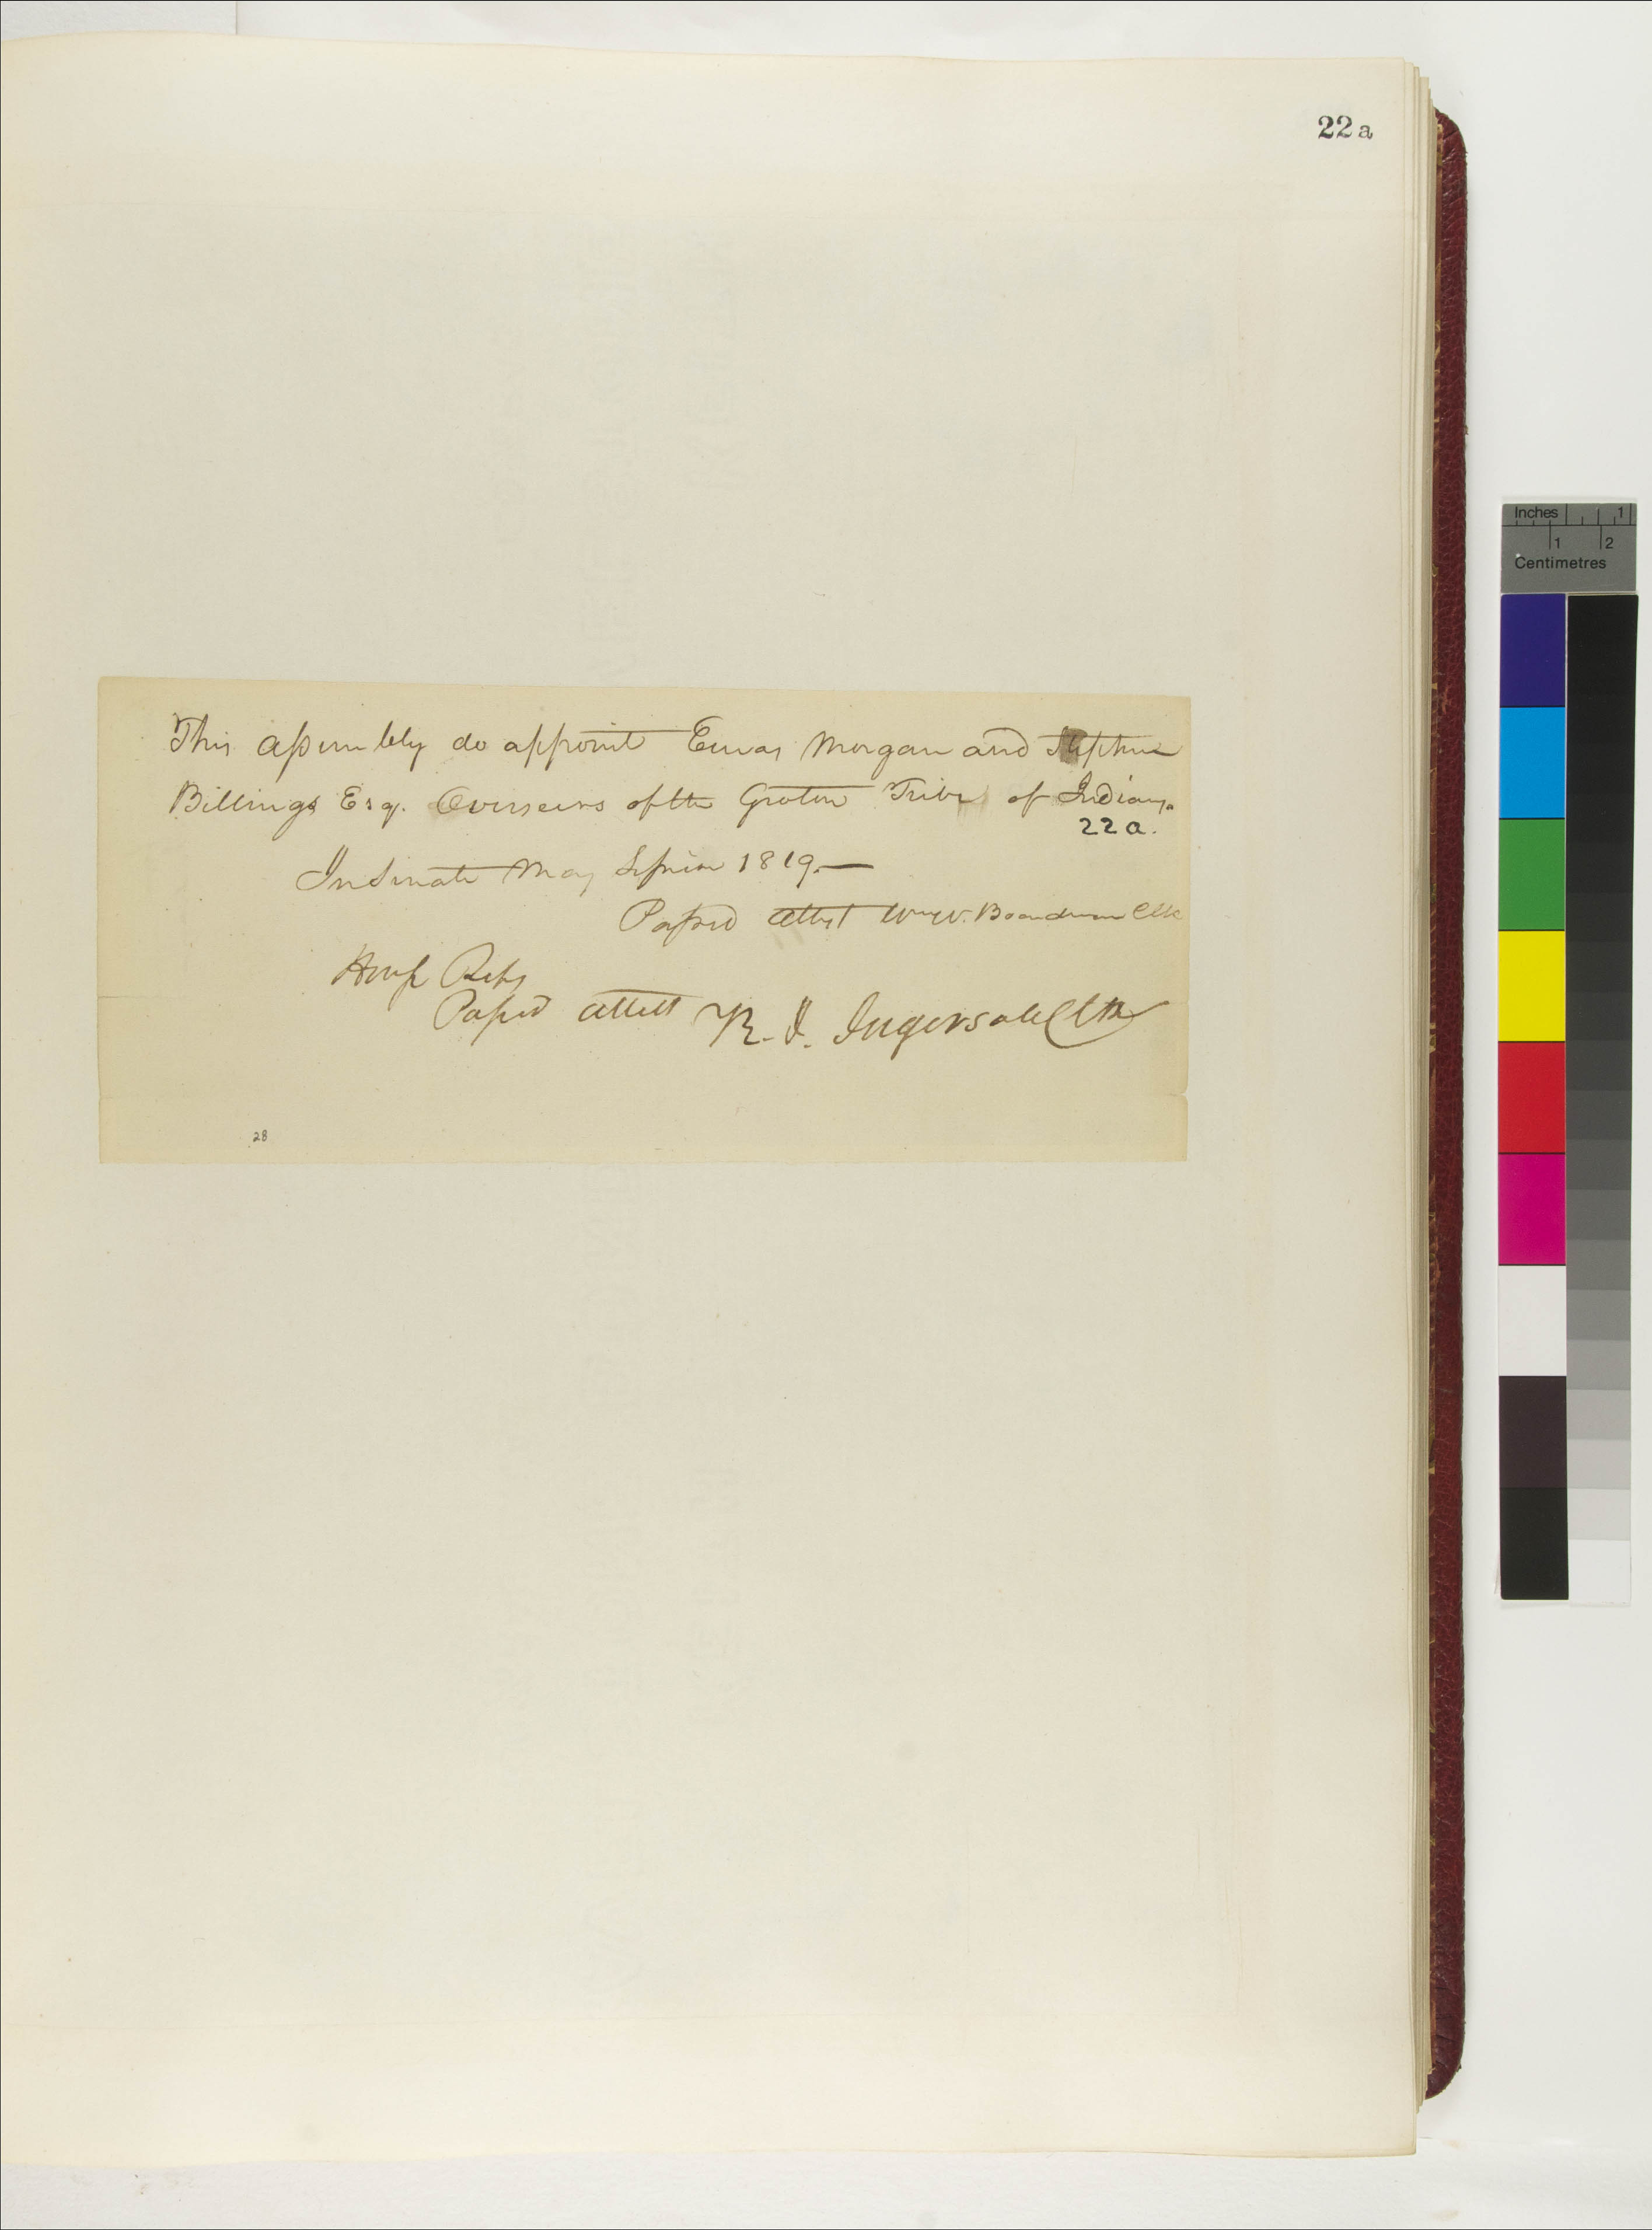 22a
This assembly do appoint Enoas Morgan and Stephen
Billings Esq. Overseers of the Groton Tribe of Indians.
22a.
In Senate May Session 1819.—
Passed Attest Wm W. Boardman Clk
House Reps
Passed attest R. I. Ingersoll Clk
28
Inches 1
1 2
Centimetres